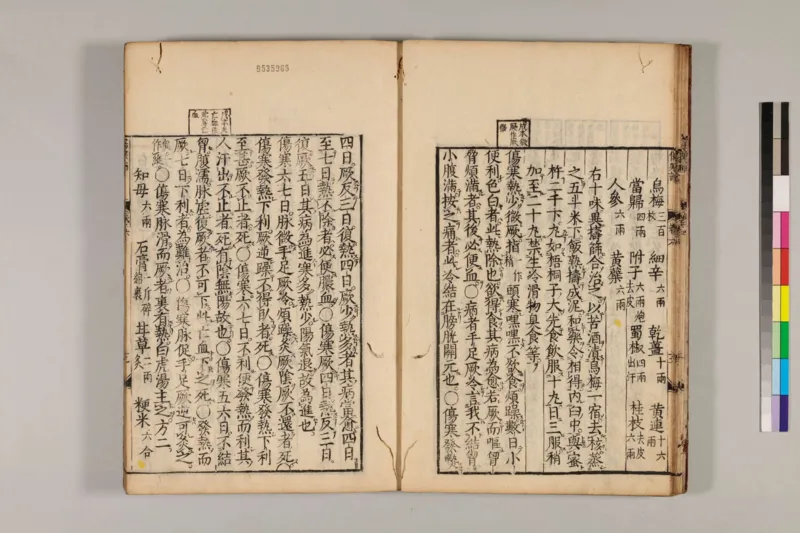 烏梅三百枚 細辛六兩 乾薑十兩 黃連十六兩
當歸四兩 附子六兩炮去皮 蜀椒四兩出汗 桂枝去皮六兩
人參六兩 黃蘗六兩
右十味異擣篩合治之以苦酒漬烏梅一宿去核蒸
之五斗米下飯熟擣成泥和藥令相得內臼中與蜜
杵二千下丸如梧桐子大先食飲服十丸日三服稍
加至二十丸禁生冷滑物臭食等
傷寒熱少微厥指一作稍頭寒嘿嘿不欲食煩躁數日小
便利色白者此熱除也欲得食其病為愈若厥而嘔胷
脅煩滿者其後必便血○病者手足厥冷言我不結胷
小腹滿按之痛者此冷結在膀胱關元也○傷寒發熱
四日厥反三日復熱四日厥少熱多者其病當愈四日
至七日熱不除者必便膿血○傷寒厥四日熱反三日
復厥五日其病為進寒多熱少陽氣退故為進也
傷寒六七日脉微手足厥冷煩躁灸厥陰厥不還者死
傷寒發熱下利厥逆躁不得臥者死○傷寒發熱下利
至甚厥不止者死○傷寒六七日不利便發熱而利其
人汗出不止者死有陰無陽故也○傷寒五六日不結
胷腹濡脉虛復厥者不可下此亡血下之死○發熱而
厥七日下利者為難治○傷寒脉促手足厥逆可灸之
○傷寒脉滑而厥者裏有熱白虎湯主之方二
知母六兩 石膏一斤碎綿裹 甘草二兩炙 粳米六合
8535965